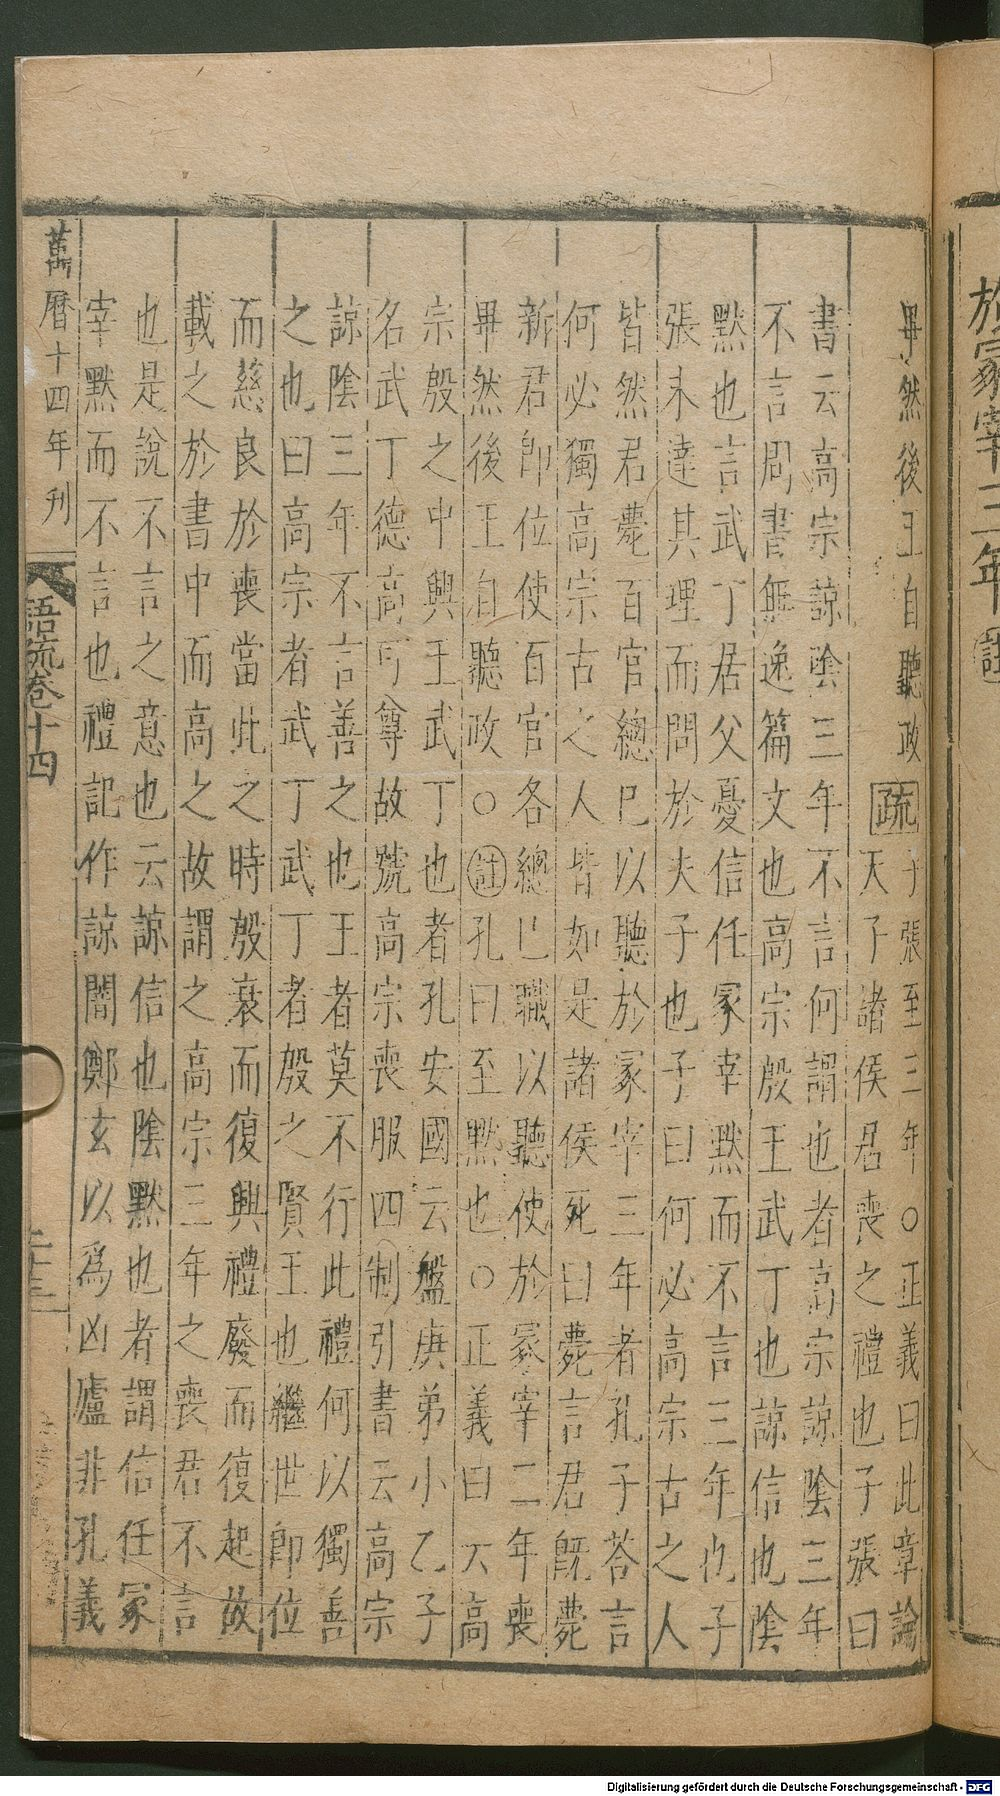 於冢宰三年註
畢然後王自聽政疏子張至三年○正義曰此章論
天子諸侯君喪之禮也子張曰
書云高宗諒陰三年不言何謂也者高宗諒陰三年
不言周書無逸篇文也高宗殷王武丁也諒信也陰
默也言武丁居父憂信任冢宰默而不言三年也子
張未達其理而問於夫子也子曰何必高宗古之人
皆然君薨百官總已以聽於冢宰三年者孔子荅言
何必獨高宗古之人皆如是諸侯死曰薨言君既薨
新君卽位使百官各總已職以聽使於冢宰二年喪
畢然後王自聽政○註孔曰至默也○正義曰云高
宗殷之中興王武丁也者孔安國云盤庚弟小乙子
名武丁德高可尊故號高宗喪服四制引書云高宗
諒陰三年不言善之也王者莫不行此禮何以獨善
之也曰高宗者武丁武丁者殷之賢王也繼世卽位
而慈良於喪當此之時殷衰而復興禮廢而復起故
載之於書中而高之故謂之高宗三年之喪君不言
也是說不言之意也云諒信也陰默也者謂信任冢
宰默而不言也禮記作諒闇鄭玄以爲凶廬非孔義
萬曆十四年刊
語疏卷十四
Digitalisierung gefördert durch die Deutsche Forschungsgemeinschaft - DFG